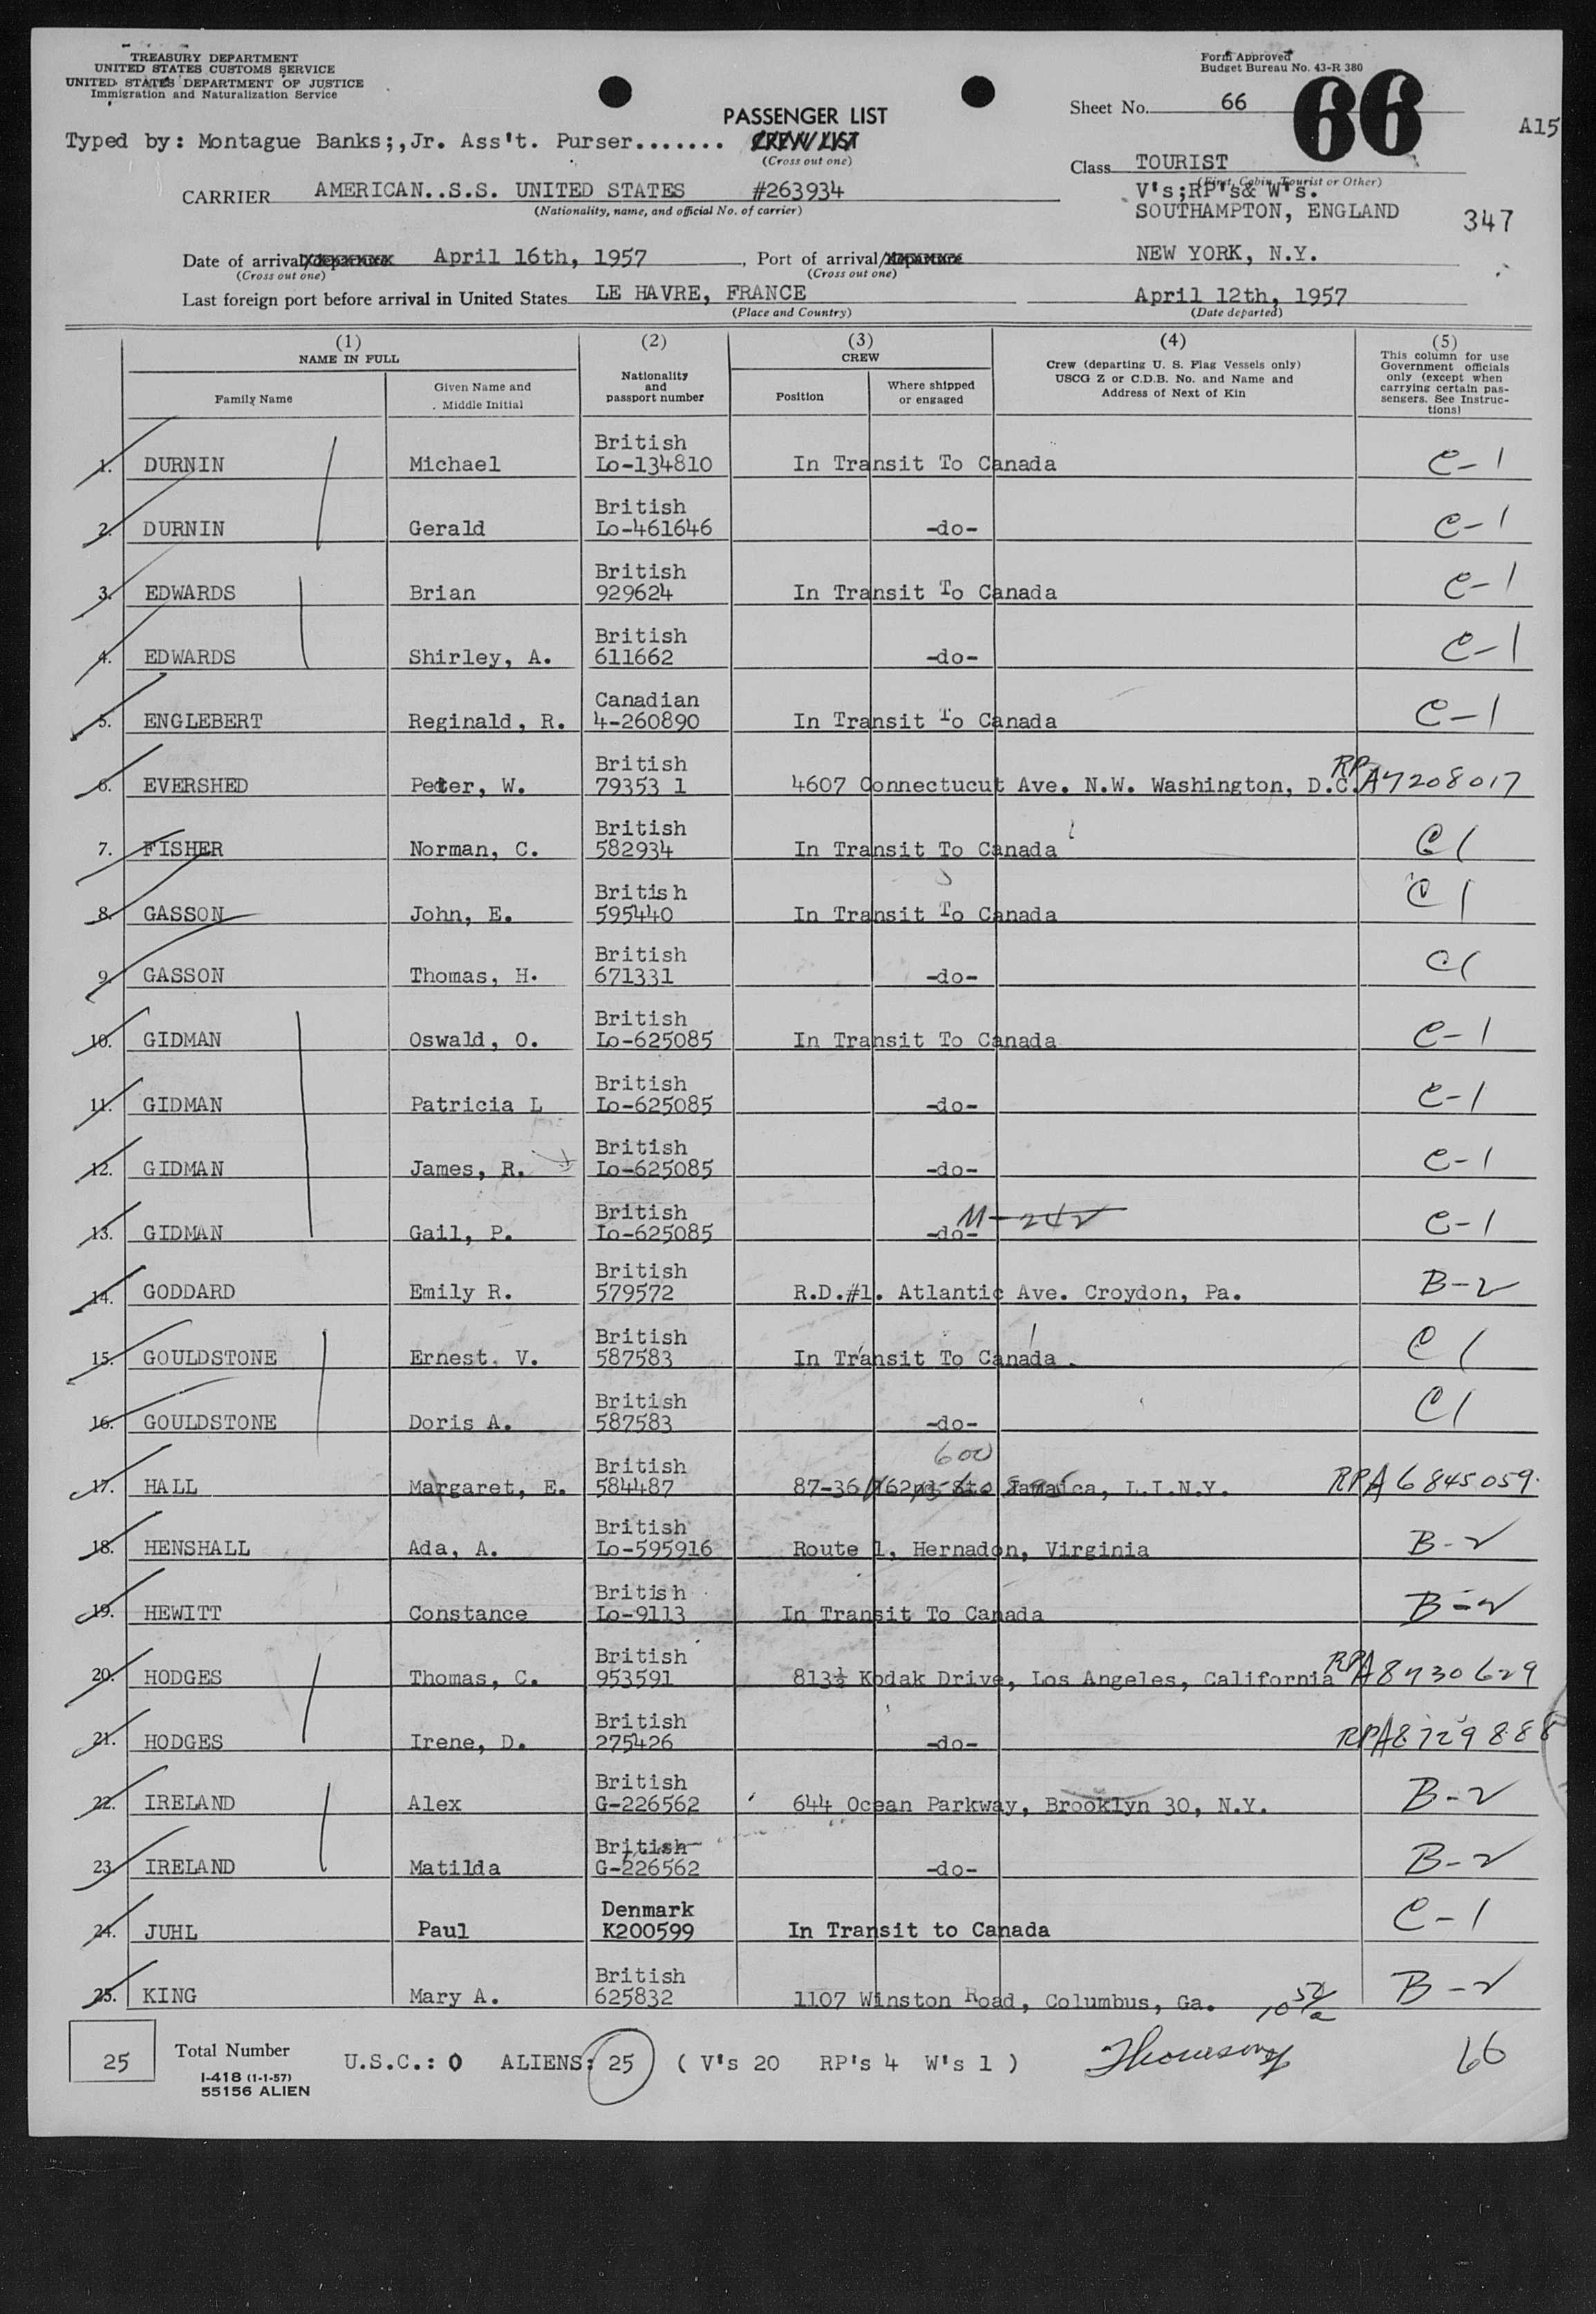 TREASURY DEPARTMENT
UNITED STATES CUSTOMS SERVICE
UNITED STATES DEPARTMENT OF JUSTICE
Immigration and Naturalization Service
Form Approved
Budget Bureau No. 43-R 380
PASSENGER LIST
CREW LIST
(Cross out one)
Sheet No. 66
66
A15
Typed by: Montague Banks;,Jr. Ass't. Purser.......
Class TOURIST
(First, Cabin, Tourist or Other)
V's;RP's& W's.
CARRIER AMERICAN..S.S. UNITED STATES #263934
(Nationality, name, and official No. of carrier)
SOUTHAMPTON, ENGLAND
347
Date of arrival/departure April 16th, 1957, Port of arrival/departure NEW YORK, N.Y.
(Cross out one) (Cross out one)
Last foreign port before arrival in United States LE HAVRE, FRANCE April 12th, 1957
(Place and Country) (Date departed)
(1) NAME IN FULL
Family Name
Given Name and Middle Initial
(2) Nationality and passport number
(3) CREW
Position
Where shipped or engaged
(4) Crew (departing U. S. Flag Vessels only) USCG Z or C.D.B. No. and Name and Address of Next of Kin
(5) This column for use Government officials only (except when carrying certain passengers. See Instructions)
1. DURNIN Michael British Lo-134810 In Transit To Canada C-1
2. DURNIN Gerald British Lo-461646 -do- C-1
3. EDWARDS Brian British 929624 In Transit To Canada C-1
4. EDWARDS Shirley, A. British 611662 -do- C-1
5. ENGLEBERT Reginald, R. Canadian 4-260890 In Transit To Canada C-1
6. EVERSHED Peter, W. British 79353 1 4607 Connectucut Ave. N.W. Washington, D.C. RP A7208017
7. FISHER Norman, C. British 582934 In Transit To Canada C1
8. GASSON John, E. British 595440 In Transit To Canada C1
9. GASSON Thomas, H. British 671331 -do- C1
10. GIDMAN Oswald, O. British Lo-625085 In Transit To Canada C-1
11. GIDMAN Patricia L British Lo-625085 -do- C-1
12. GIDMAN James, R. British Lo-625085 -do- C-1
13. GIDMAN Gail, P. British Lo-625085 -do- M-242 C-1
14. GODDARD Emily R. British 579572 R.D.#1. Atlantic Ave. Croydon, Pa. B-2
15. GOULDSTONE Ernest. V. British 587583 In Transit To Canada. C1
16. GOULDSTONE Doris A. British 587583 -do- C1
600
17. HALL Margaret, E. British 584487 87-36 162nd St. Jamaica, L.I.N.Y. RPA 6845059
18. HENSHALL Ada, A. British Lo-595916 Route 1, Hernadon, Virginia B-2
19. HEWITT Constance British Lo-9113 In Transit To Canada B-2
20. HODGES Thomas, C. British 953591 813½ Kodak Drive, Los Angeles, California RPA 8730629
21. HODGES Irene, D. British 275426 -do- RPA 8729888
22. IRELAND Alex British G-226562 644 Ocean Parkway, Brooklyn 30, N.Y. B-2
23. IRELAND Matilda British G-226562 -do- B-2
24. JUHL Paul Denmark K200599 In Transit to Canada C-1
25. KING Mary A. British 625832 1107 Winston Road, Columbus, Ga. B-2
25 Total Number
U.S.C.: 0 ALIENS: 25 ( V's 20 RP's 4 W's 1 )
66
I-418 (1-1-57)
55156 ALIEN